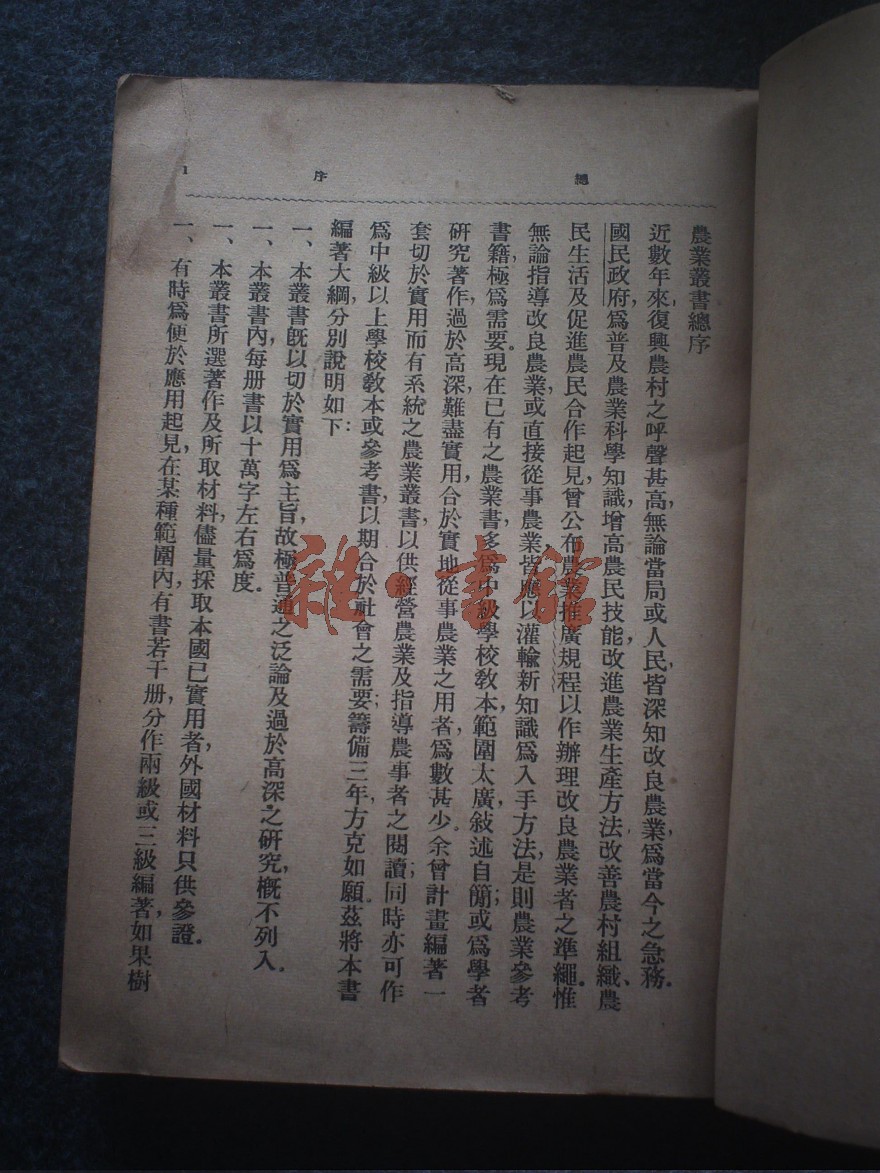 總　　序　　1
農業叢書總序
近數年來，復興農村之呼聲甚高，無論當局或人民，皆深知改良農業，爲當今之急務。
國民政府，爲普及農業科學知識，增高農民技能，改進農業生產方法，改善農村組織、農
民生活及促進農民合作起見，曾公布農業推廣規程，以作辦理改良農業者之準繩。惟
無論指導改良農業，或直接從事農業，皆應以灌輸新知識爲入手方法，是則農業參考
書籍，極爲需要。現在已有之農業書，多爲中級學校教本，範圍太廣，敍述自簡；或爲學者
研究著作，過於高深，難盡實用，合於實地從事農業之用者，爲數甚少。余曾計畫編著一
套切於實用而有系統之農業叢書，以供經營農業及指導農事者之閱讀；同時亦可作
爲中級以上學校教本或參考書，以期合於社會之需要；籌備三年，方克如願。茲將本書
編著大綱，分別說明如下：
一、本叢書既以切於實用爲主旨，故極普通之泛論及過於高深之研究，概不列入。
一、本叢書內，每册書以十萬字左右爲度。
一、本叢書所選著作及所取材料，儘量採取本國已實用者，外國材料，只供參證。
一、有時爲便於應用起見，在某種範圍內，有書若干册，分作兩級或三級編著，如果樹
雜·書館